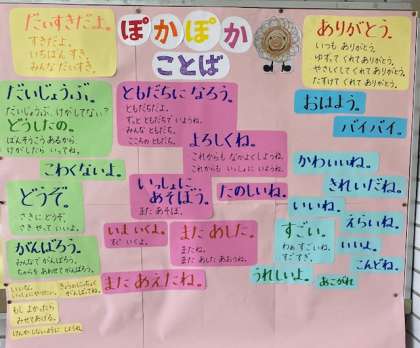 だいすきだよ。
すきだよ。
いちばん すき。
みんな だいすき。
ぽかぽか
ことば
ありがとう。
いつも ありがとう。
ゆずって くれて ありがとう。
やさしくして くれて ありがとう。
たすけて くれて ありがとう。
だいじょうぶ。
だいじょうぶ、けがしてない?
どうしたの。
ばんそうこう あるから
けがしたら いってね。
こわくないよ。
どうぞ。
さきに どうぞ。
さき やって いいよ。
がんばろう。
みんなで がんばろう。
ちからを あわせて がんばろう。
ともだちに なろう。
ともだちだよ。
ずっと ともだちで いようね。
みんな ともだち。
こころの ともだち。
よろしくね。
これからも なかよくしようね。
これからも いっしょに いようね。
いっしょに
あそぼう。
また あそぼ。
たのしいね。
いま いくよ。
すぐ いくよ。
また あした。
またね。
また あした あおうね。
また あえたね。
おはよう。
バイバイ。
かわいいね。
きれいだね。
いいね。
えらいね。
すごい。
わぁ すごいね。
すごすぎ。
いいよ。
こんどね。
うれしいよ。
あこがれ
もし よかったら
みせてあげる。
けんかしないように しようね